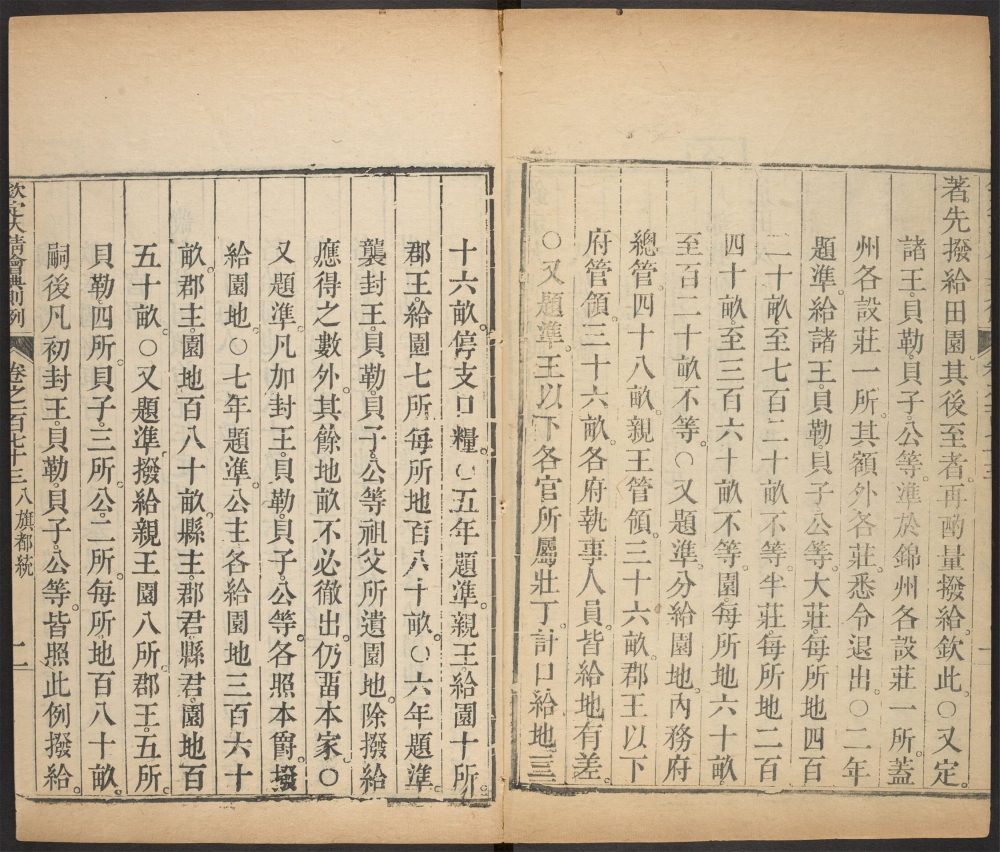 著先撥給田園其後至者再酌量撥給欽此。○又定
諸王貝勒貝子公等準於錦州各設莊一所。蓋
州各設莊一所。其額外各莊悉令退出。○二年
題準給諸王貝勒貝子公等大莊每所地四百
二十畝至七百二十畝不等半莊每所地二百
四十畝至三百六十畝不等園每所地六十畝
至百二十畝不等○又題準分給園地內務府
總管四十八畝親王管領三十六畝郡王以下
府管領三十六畝各府執事人員皆給地有差。
○又題準王以下各官所屬壯丁計口給地三
十六畝。停支口糧。○五年題準。親王給園十所。
郡王給園七所。每所地百八十畝。○六年題準。
襲封王貝勒貝子公等祖父所遺園地。除撥給
應得之數外。其餘地畝不必徹出。仍畱本家。○
又題準。凡加封王貝勒貝子公等。各照本爵撥
給園地。○七年題準。公主各給園地三百六十
畝。郡主園地百八十畝。縣主郡君縣君園地百
五十畝。○又題準撥給親王園八所。郡王五所。
貝勒四所。貝子三所。公二所。每所地百八十畝。
嗣後凡初封王貝勒貝子公等皆照此例撥給。
欽定大清會典則例 卷之一百七十三 八旗都統 二